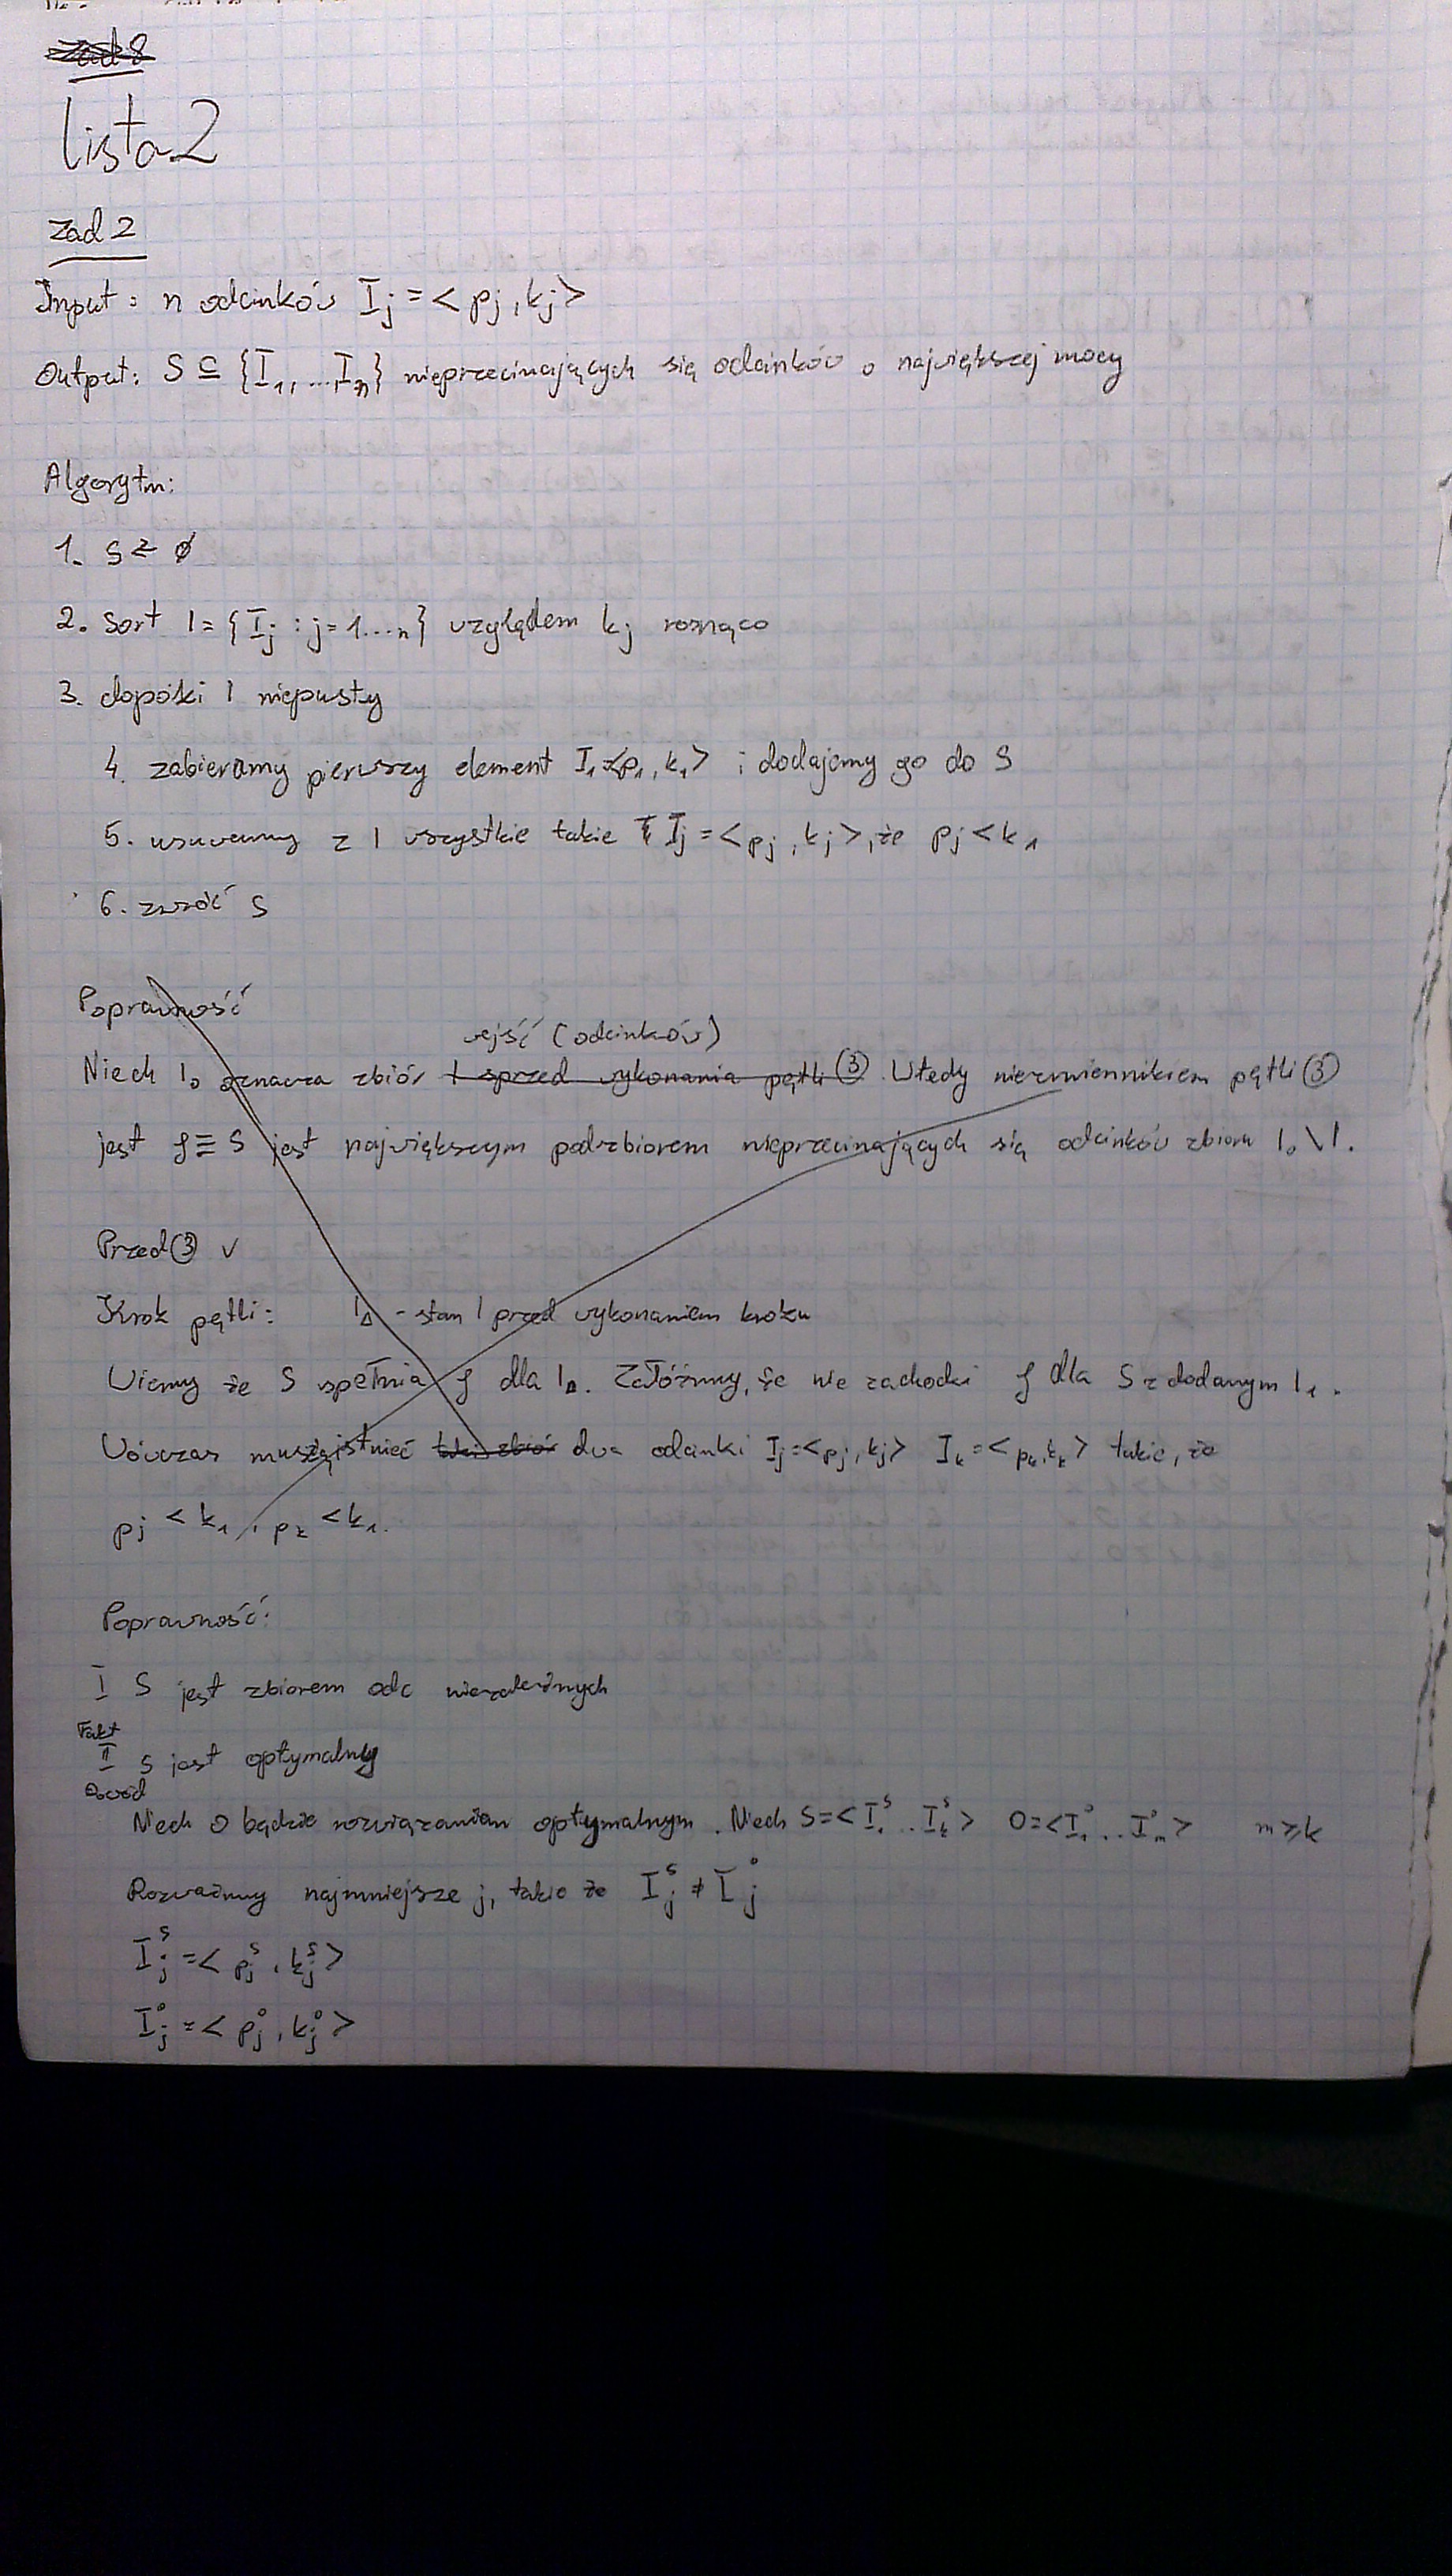 Zad 8
Lista 2
Zad 2
Input: n odcinków I_j = <p_j, k_j>
Output: S ⊆ {I_1, ..., I_n} nieprzecinających się odcinków o największej mocy
Algorytm:
1. S ← ∅
2. Sort I = {I_j : j = 1...n} względem k_j rosnąco
3. dopóki I niepusty
4. zabieramy pierwszy element I_1 <p_1, k_1> i dodajemy go do S
5. usuwamy z I wszystkie takie I_j = <p_j, k_j>, że p_j < k_1
6. zwróć S
Poprawność
wejść (odcinków)
Niech I_0 oznacza zbiór I sprzed wykonania pętli ③. Wtedy niezmiennikiem pętli ③
jest ρ ≡ S jest największym podzbiorem nieprzecinających się odcinków zbioru I_0 \ I.
Przed ③ ✓
Krok pętli: I_Δ - stan I przed wykonaniem kroku
Wiemy że S spełnia ρ dla I_Δ. Załóżmy, że nie zachodzi ρ dla S z dodanym I_1.
Wówczas muszą istnieć taki zbiór dwa odcinki I_j = <p_j, k_j> I_k = <p_k, k_k> takie, że
p_j < k_1, p_k < k_1.
Poprawność:
I S jest zbiorem odc niezależnych
Fakt
II S jest optymalny
Dowód
Niech O będzie rozwiązaniem optymalnym. Niech S = <I_1^S .. I_k^S> O = <I_1^O .. I_m^O> m ≥ k
Rozważmy najmniejsze j, takie że I_j^S ≠ I_j^O
I_j^S = <p_j^S, k_j^S>
I_j^O = <p_j^O, k_j^O>